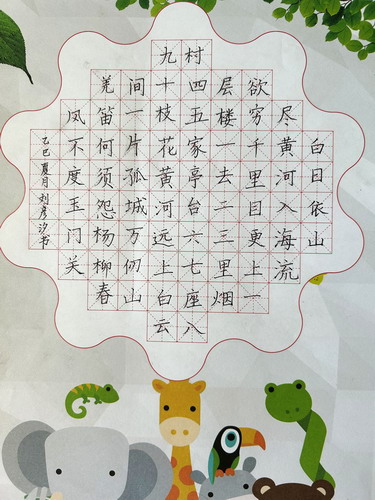 白日依山
尽黄河入海流
欲穷千里目更上一
层楼一去二三里烟
村四五家亭台六七座八
九十枝花黄河远上白云
间一片孤城万仞山
羌笛何须怨杨柳春
风不度玉门关
乙巳夏月 刘彦汐书